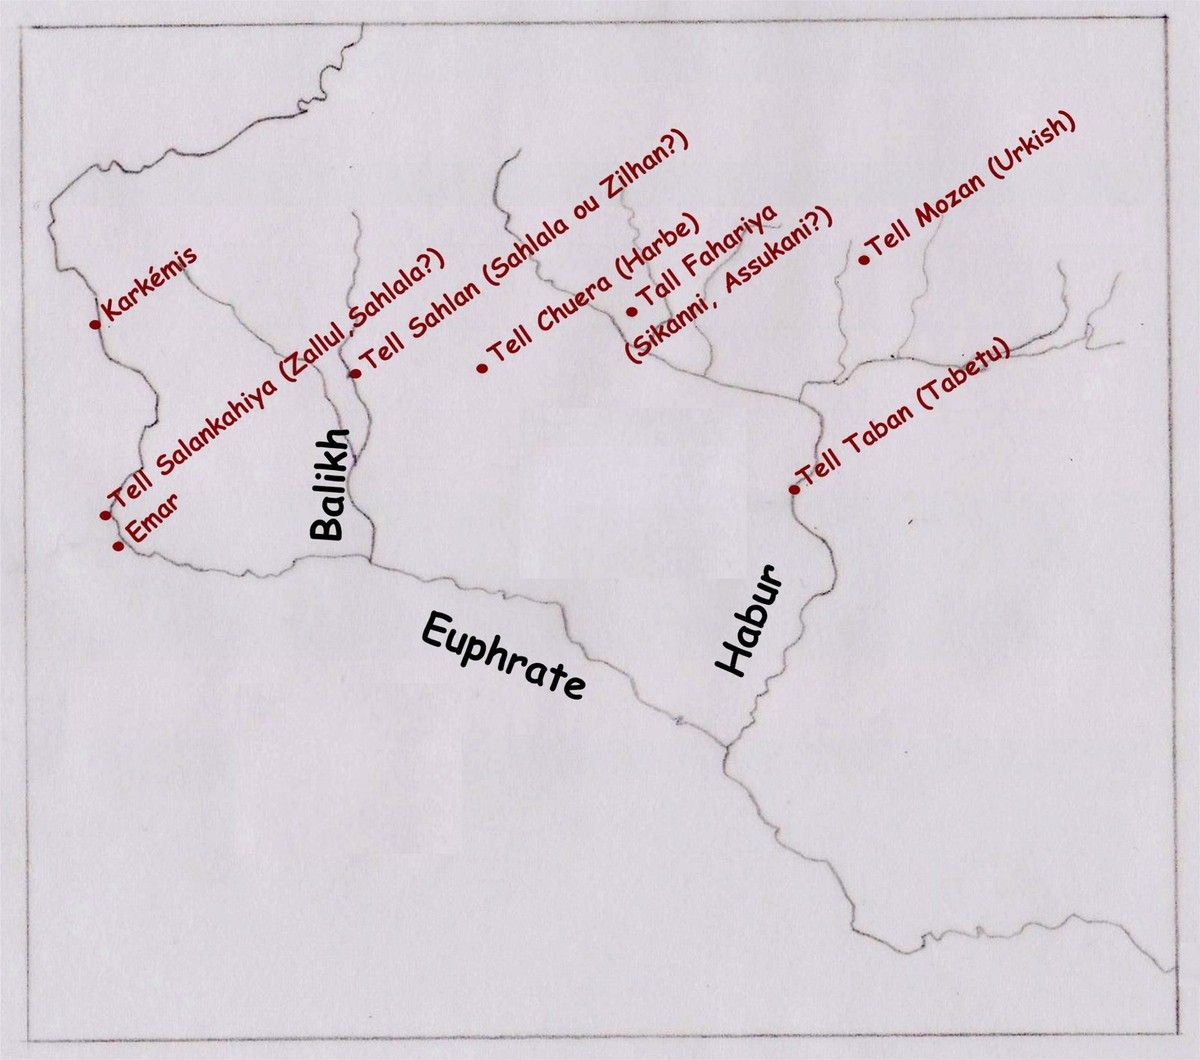 Karkémis
Tell Salankahiya (Zallul, Sahlala?)
Emar
Tell Sahlan (Sahlala ou Zilhan?)
Tell Chuera (Harbe)
Tall Fahariya
(Sikanni, Assukani?)
Tell Mozan (Urkish)
Tell Taban (Tabetu)
Balikh
Habur
Euphrate